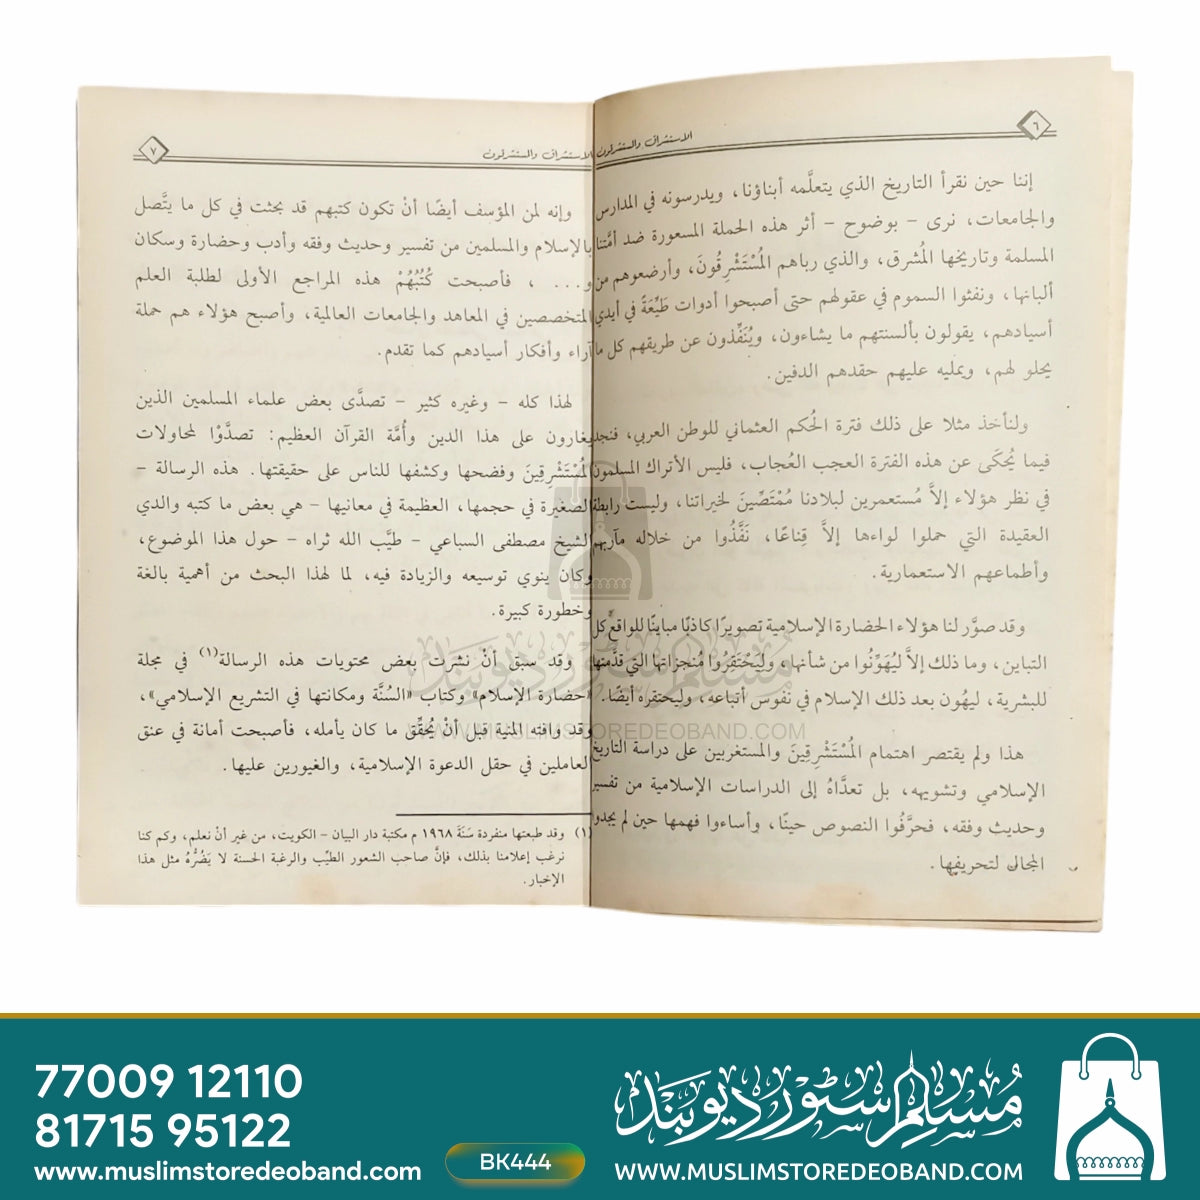 ٦
الاستشراق والمستشرقون
إننا حين نقرأ التاريخ الذي يتعلَّمه أبناؤنا، ويدرسونه في المدارس
والجامعات، نرى - بوضوح - أثر هذه الحملة المسعورة ضد أمَّتنا
المسلمة وتاريخها المُشرق، والذي رباهم المُسْتَشْرِقُونَ، وأرضعوهم من
ألبانها، ونفثوا السموم في عقولهم حتى أصبحوا أدوات طَيِّعَةً في أيدي
أسيادهم، يقولون بألسنتهم ما يشاءون، ويُنَفِّذون عن طريقهم كل ما
يحلو لهم، ويمليه عليهم حقدهم الدفين.
ولنأخذ مثلا على ذلك فترة الحُكم العثماني للوطن العربي، فنجد
فيما يُحكَى عن هذه الفترة العجب العُجاب، فليس الأتراك المسلمون
في نظر هؤلاء إلاَّ مُستعمرين لبلادنا مُمْتَصِّينَ لخيراتنا، وليست رابطة
العقيدة التي حملوا لواءها إلاَّ قِناعًا، نَفَّذُوا من خلاله مآربهم
وأطماعهم الاستعمارية.
وقد صوَّر لنا هؤلاء الحضارة الإسلامية تصويرًا كاذبًا مباينًا للواقع كل
التباين، وما ذلك إلاَّ ليُهَوِّنُوا من شأنها، وليَحْتَقِرُوا مُنجزاتها التي قدَّمتها
للبشرية، ليهُون بعد ذلك الإسلام في نفوس أتباعه، وليحتقره أيضًا.
هذا ولم يقتصر اهتمام المُسْتَشْرِقِينَ والمستغربين على دراسة التاريخ
الإسلامي وتشويهه، بل تعدَّاهُ إلى الدراسات الإسلامية من تفسير
وحديث وفقه، فحرَّفُوا النصوص حينًا، وأساءوا فهمها حين لم يجدوا
المجال لتحريفها.
الاستشراق والمستشرقون
٧
وإنه لمن المؤسف أيضًا أنْ تكون كتبهم قد بحثت في كل ما يتَّصل
بالإسلام والمسلمين من تفسير وحديث وفقه وأدب وحضارة وسكان
و... ، فأصبحت كُتُبُهُمْ هذه المراجع الأولى لطلبة العلم
المتخصصين في المعاهد والجامعات العالمية، وأصبح هؤلاء هم حملة
آراء وأفكار أسيادهم كما تقدم.
لهذا كله - وغيره كثير - تصدَّى بعض علماء المسلمين الذين
يغارون على هذا الدين وأُمَّة القرآن العظيم: تصدَّوْا لمحاولات
المُسْتَشْرِقِينَ وفضحها وكشفها للناس على حقيقتها. هذه الرسالة -
الصغيرة في حجمها، العظيمة في معانيها - هي بعض ما كتبه والذي
الشيخ مصطفى السباعي - طيَّب الله ثراه - حول هذا الموضوع،
وكان ينوي توسيعه والزيادة فيه، لما لهذا البحث من أهمية بالغة
وخطورة كبيرة.
وقد سبق أنْ نشرت بعض محتويات هذه الرسالة(١) في مجلة
«حضارة الإسلام» وكتاب «السُنَّة ومكانتها في التشريع الإسلامي»،
وقد وافته المنية قبل أنْ يُحقِّق ما كان يأمله، فأصبحت أمانة في عنق
العاملين في حقل الدعوة الإسلامية، والغيورين عليها.
(١) وقد طبعتها منفردة سَنَةَ ١٩٦٨ م مكتبة دار البيان - الكويت، من غير أنْ نعلم، وكم كنا
نرغب إعلامنا بذلك، فإنَّ صاحب الشعور الطيِّب والرغبة الحسنة لا يَضُرُّهُ مثل هذا
الإخبار.
مسلم سٹور دیوبند
WWW.MUSLIMSTOREDEOBAND.COM
77009 12110
81715 95122
www.muslimstoredeoband.com
BK444
مسلم سٹور دیوبند
WWW.MUSLIMSTOREDEOBAND.COM